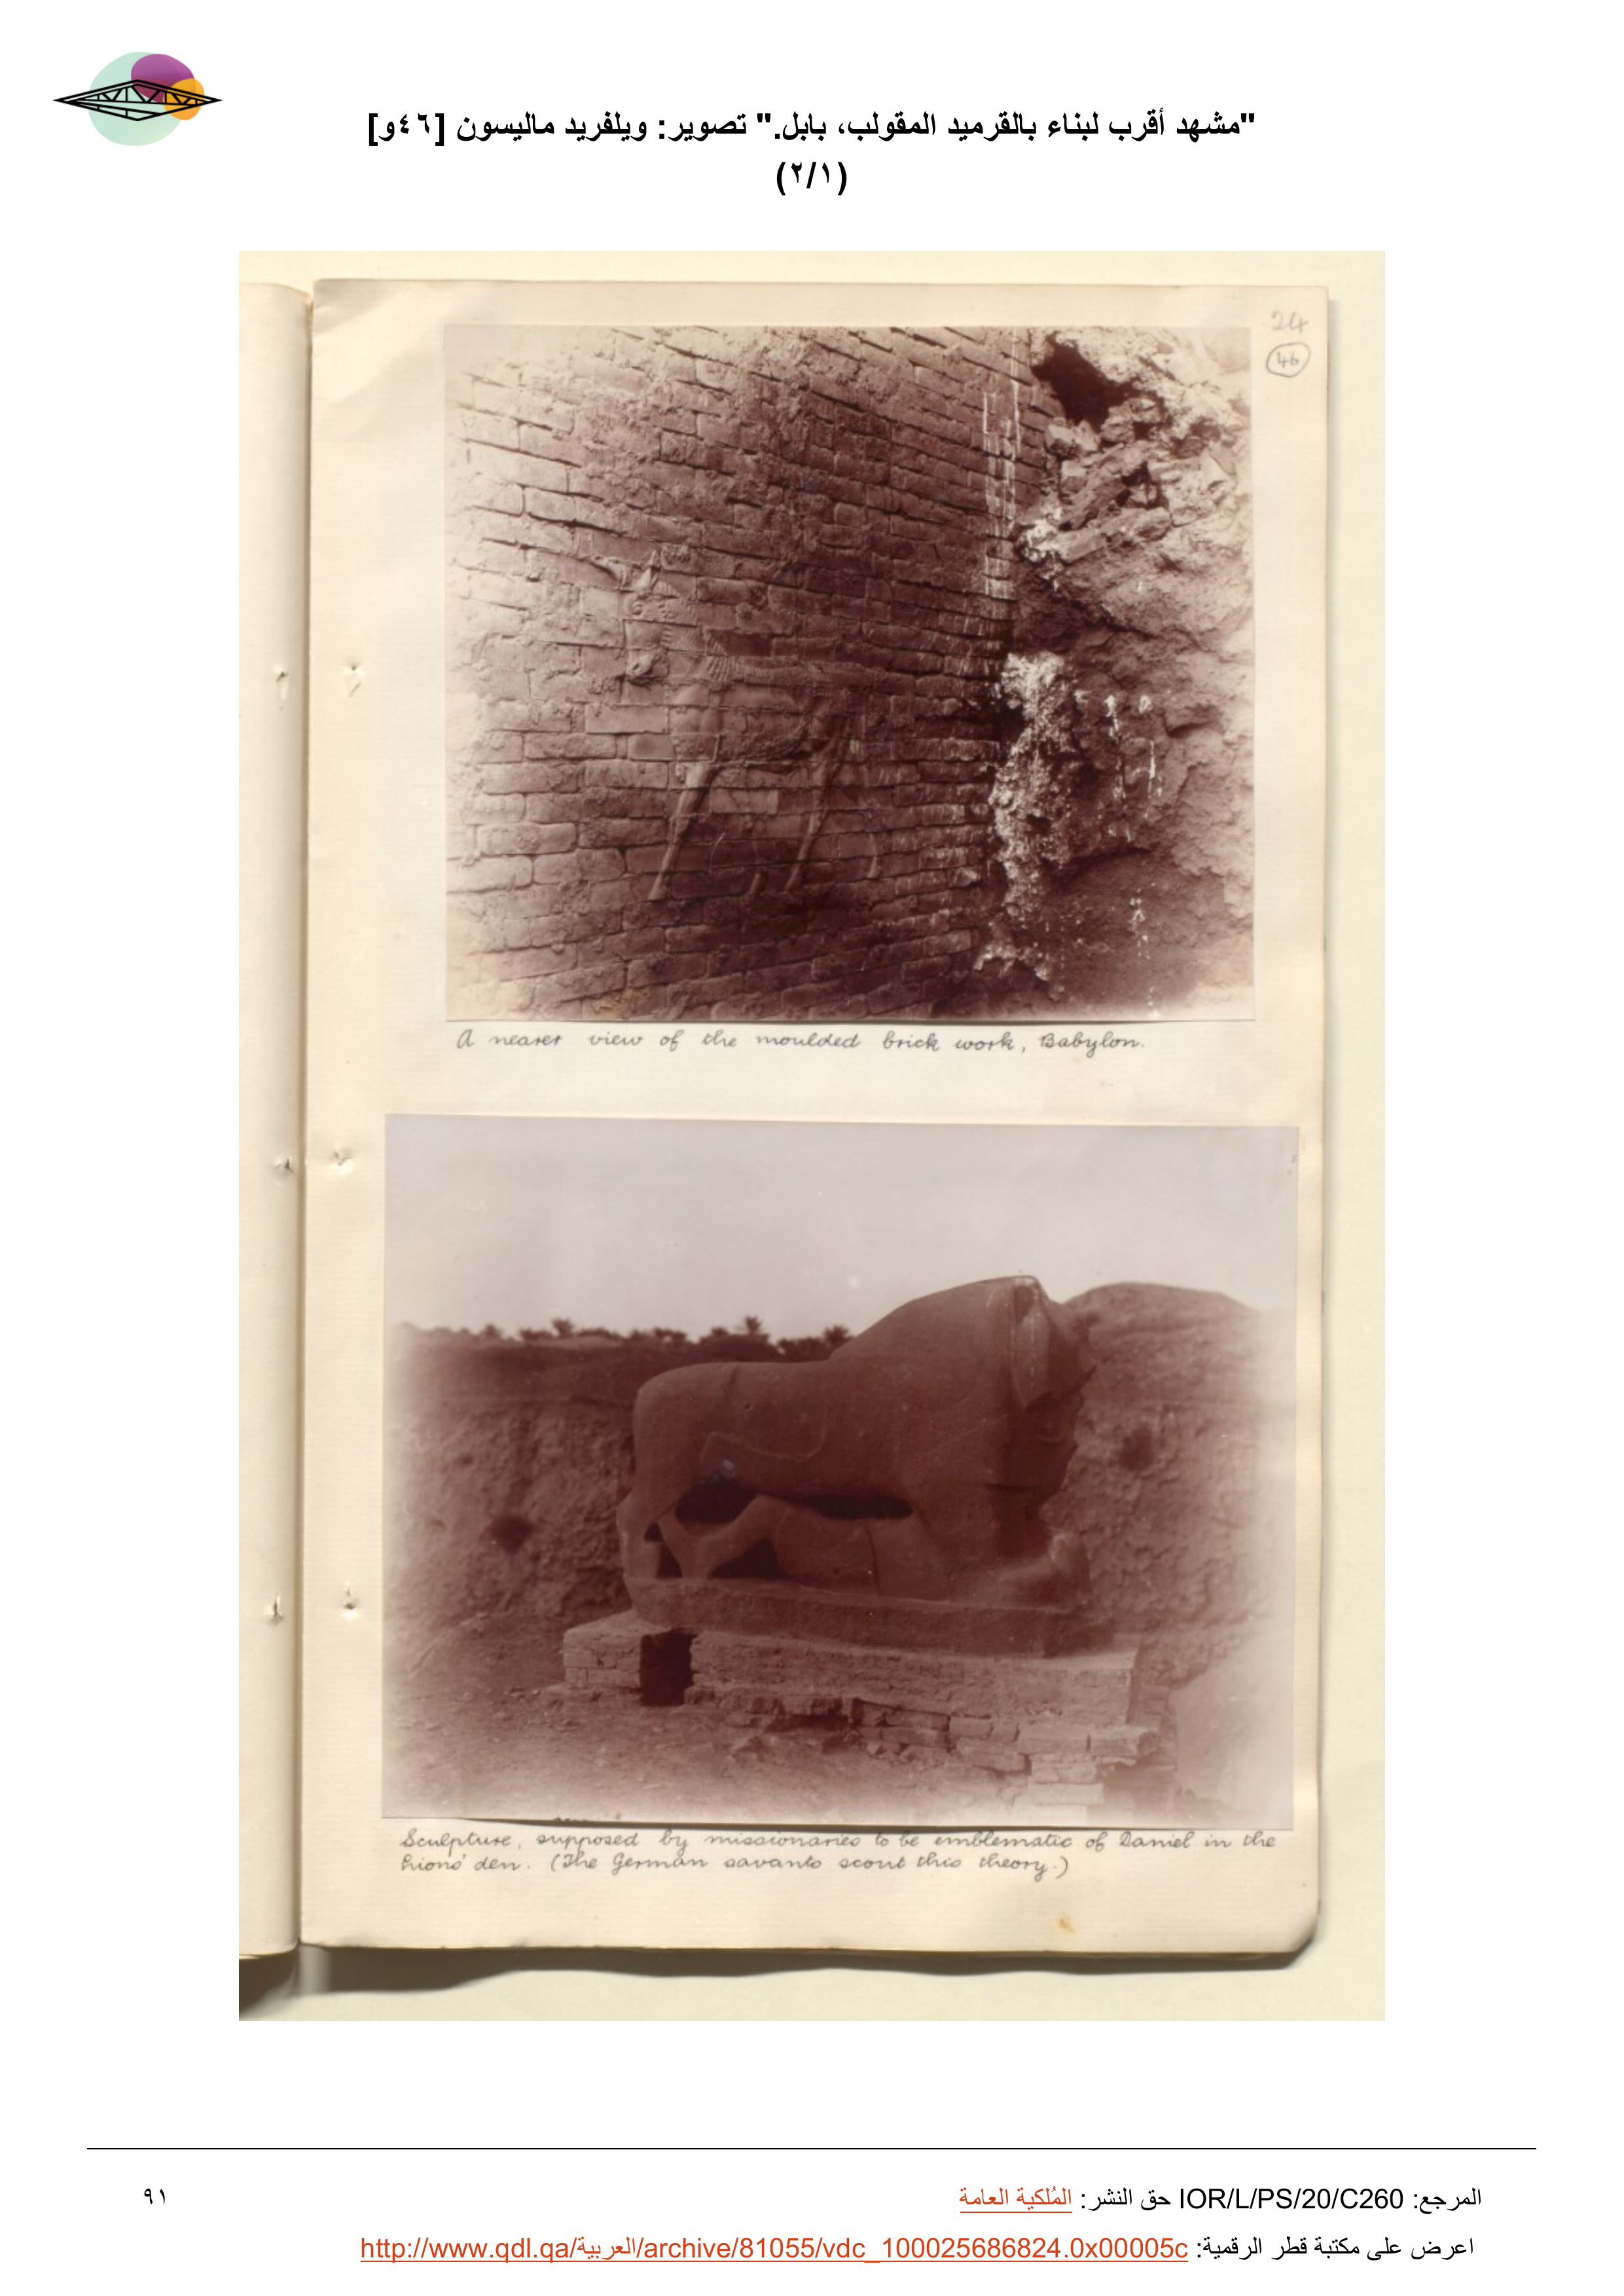 "مشهد أقرب لبناء بالقرميد المقولب، بابل." تصوير: ويلفريد ماليسون [٤٦و]
(٢/١)
24
46
A nearer view of the moulded brick work, Babylon.
Sculpture, supposed by missionaries to be emblematic of Daniel in the
Lions' den. (The German savants scout this theory.)
المرجع: IOR/L/PS/20/C260 حق النشر: المُلكية العامة
٩١
اعرض على مكتبة قطر الرقمية: http://www.qdl.qa/العربية/archive/81055/vdc_100025686824.0x00005c